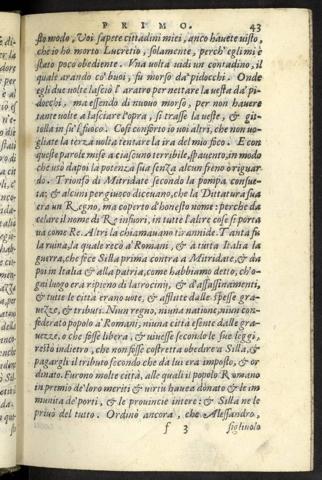 PRIMO. 43
sto modo, Voi sapete cittadini miei, anco hauete visto,
che io ho morto Lucretio, solamente, perch'egli mi è
stato poco obediente. Vna volta vidi un contadino, il
quale arando co' buoi, fu morso da' pidocchi. Onde
egli due volte lasciò l'aratro per nettare la vesta da' pi-
docchi, ma essendo di nuovo morso, per non hauere
tante volte a lasciare l'opra, si trasse la veste, & git-
tolla in su'l fuoco. Così conforto io voi altri, che non uo-
gliate la terza volta tentare la ira del mio foco. E con
queste parole mise a ciascuno terribile spauento, in modo
che usò dapoi la potenza sua senza alcun freno ò riguar
do. Trionfò di Mitridate secondo la pompa consue-
ta; & alcuni per giuoco diceuano, che la Dittatura sua
era un Regno, ma coperto d'honesto nome: perche da
celare il nome di Re infuori, in tutte l'altre cose si porta
ua come Re. Altri la chiamauano tirannide. Tanta fu
la ruina, la quale recò a' Romani, & a tutta Italia la
guerra, che fice Silla prima contra a Mitridate, & da
poi in Italia & alla patria, come habbiamo detto, ch'o-
gni luogo era ripieno di latrocinij, & d'assassinamenti,
& tutte le città erano uote, & afflitte dalle spesse gra-
uezze, & tributi. Niun regno, niuna natione, niun con-
federato popolo a' Romani, niuna città esente dalle gra-
uezze, o che fosse libera, & viuesse secondo le sue leggi,
restò indietro, che non fosse costretta obedire a Silla, &
pagargli il tributo secondo che da lui era imposto, & or
dinato. Furono molte città, alle quali il popolo Romano
in premio de' loro meriti & virtù hauea donato & le im
munita de' porti, & le prouincie intere: & Silla ne le
priuò del tutto. Ordinò ancora, che Alessandro,
f 3 figliuolo